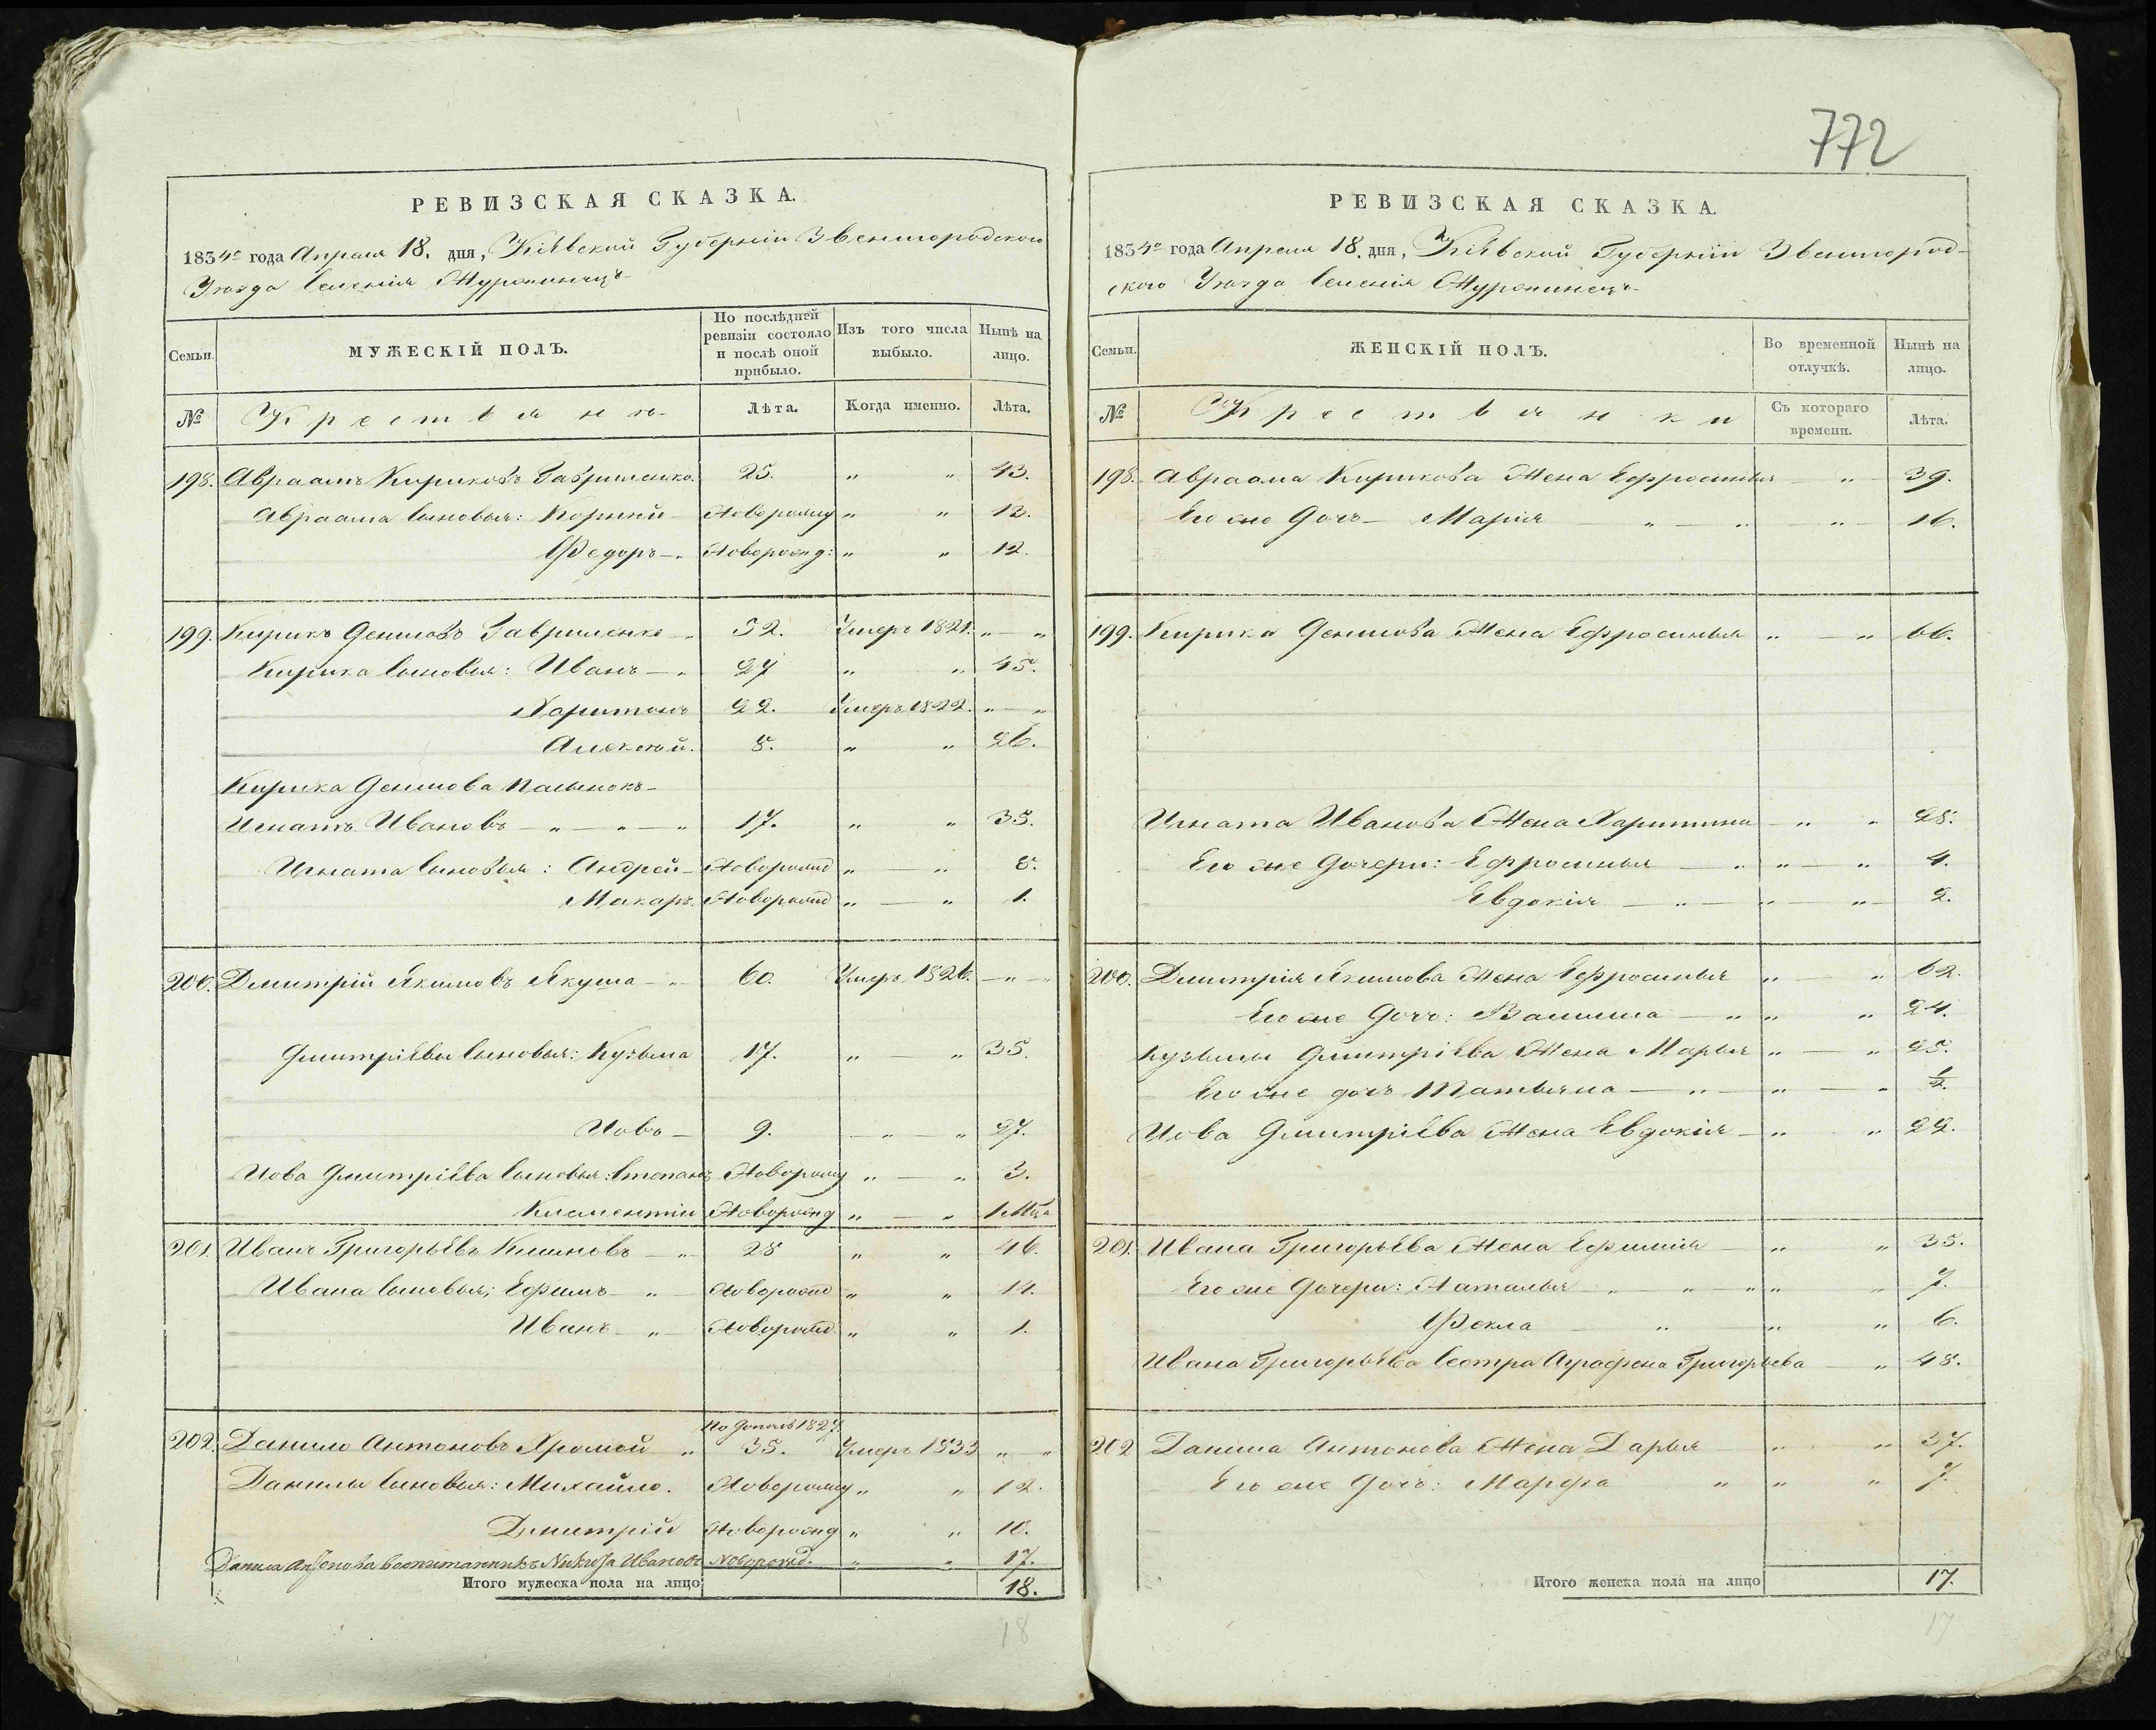 772
РЕВИЗСКАЯ СКАЗКА.
1834го года Апреля 18. дня, Кіевской Губерніи Звенигородского
Уезда Селенія Журжинецъ
Семьи.
МУЖЕСКІЙ ПОЛЪ.
По послѣдней ревизіи состояло и послѣ оной прибыло.
Изъ того числа выбыло.
Нынѣ на лицо.
№
Крестьяне
Лѣта.
Когда именно.
Лѣта.
198. Авраамъ Кириковъ Гавриленко. 25. " " 43.
Авраама Сыновья: Корний Новорожд " " 13.
Федоръ Новорожд: " " 12.
199. Кирикъ Денисовъ Гавриленко 52. Умеръ 1821. " "
Кирика Сыновья: Иванъ 27 " " 45.
Харитонъ 22. Умеръ 1822. " "
Алексѣй. 8. " " 26.
Кирика Денисова Пасынокъ
Игнатъ Ивановъ " " " 17. " " 35.
Игната Сыновья: Андрей Новорожд " " 8.
Макаръ. Новорожд " " 1.
200. Дмитрій Якимовъ Якуша 60. Умеръ 1826. "
Дмитріевы Сыновья: Кузьма 17. " " 35.
Иовъ 9. " " 27.
Иова Дмитріева Сыновья: Степанъ Новорожд " " 3.
Климентій Новорожд " " 1 Мца
201. Иванъ Григорьевъ Климовъ 28 " " 46.
Ивана Сыновья; Ефимъ " Новорожд " " 14.
Иванъ " Новорожд " " 1.
По Допол 1827.
202. Данило Антоновъ Хромой " 35. Умеръ 1833 " "
Данилы Сыновья: Михайло. Новорожд " " 12.
Дмитрій Новорожд " " 10.
Данила Антонова воспитанникъ Никита Ивановъ Новорожд. " " 17.
Итого мужеска пола на лицо 18.
18
РЕВИЗСКАЯ СКАЗКА.
1834го года Апреля 18. дня, Кіевской Губерніи Звенигород-
ского Уезда Селенія Журжинецъ
Семьи.
ЖЕНСКІЙ ПОЛЪ.
Во временной отлучкѣ.
Нынѣ на лицо.
№
Крестьянки
Съ котораго времени.
Лѣта.
198. Авраама Кирикова Жена Ефросинья " 39.
Его же Дочь Марія " " " 16.
199. Кирика Денисова Жена Ефросинья " " 66.
Игната Иванова Жена Харитина " " 28.
Его же Дочери: Ефросинья " " " 4.
Евдокія " " " 2.
200. Дмитрія Якимова Жена Ефросинья " " 62.
Его же Дочь: Василиса " " " 24.
Кузьмы Дмитріева Жена Марья " " 25.
Его же дочь Татьяна " " " ½.
Иова Дмитріева Жена Евдокія " " 22.
201. Ивана Григорьева Жена Ефимія " " 35.
Его же Дочери: Наталья " " " " " 7.
Фекла " " " 6.
Ивана Григорьева Сестра Аграфена Григорьева " 48.
202 Данила Антонова Жена Дарья " " 37.
Его же Дочь: Марфа " " " 7.
Итого женска пола на лицо 17.
17